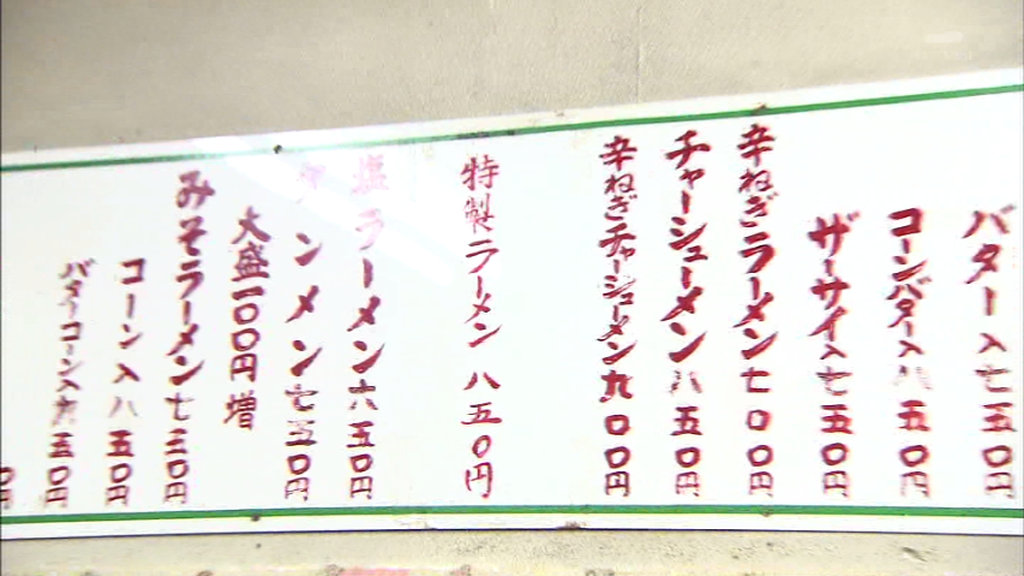 バター入七五〇円
コーンバター入八五〇円
ザーサイ入七五〇円
辛ねぎラーメン七〇〇円
チャーシューメン八五〇円
辛ねぎチャーシューメン九〇〇円
特製ラーメン八五〇円
塩ラーメン六五〇円
ンメン七五〇円
大盛一〇〇円増
みそラーメン七三〇円
コーン入八五〇円
バターコーン入九五〇円
〇円